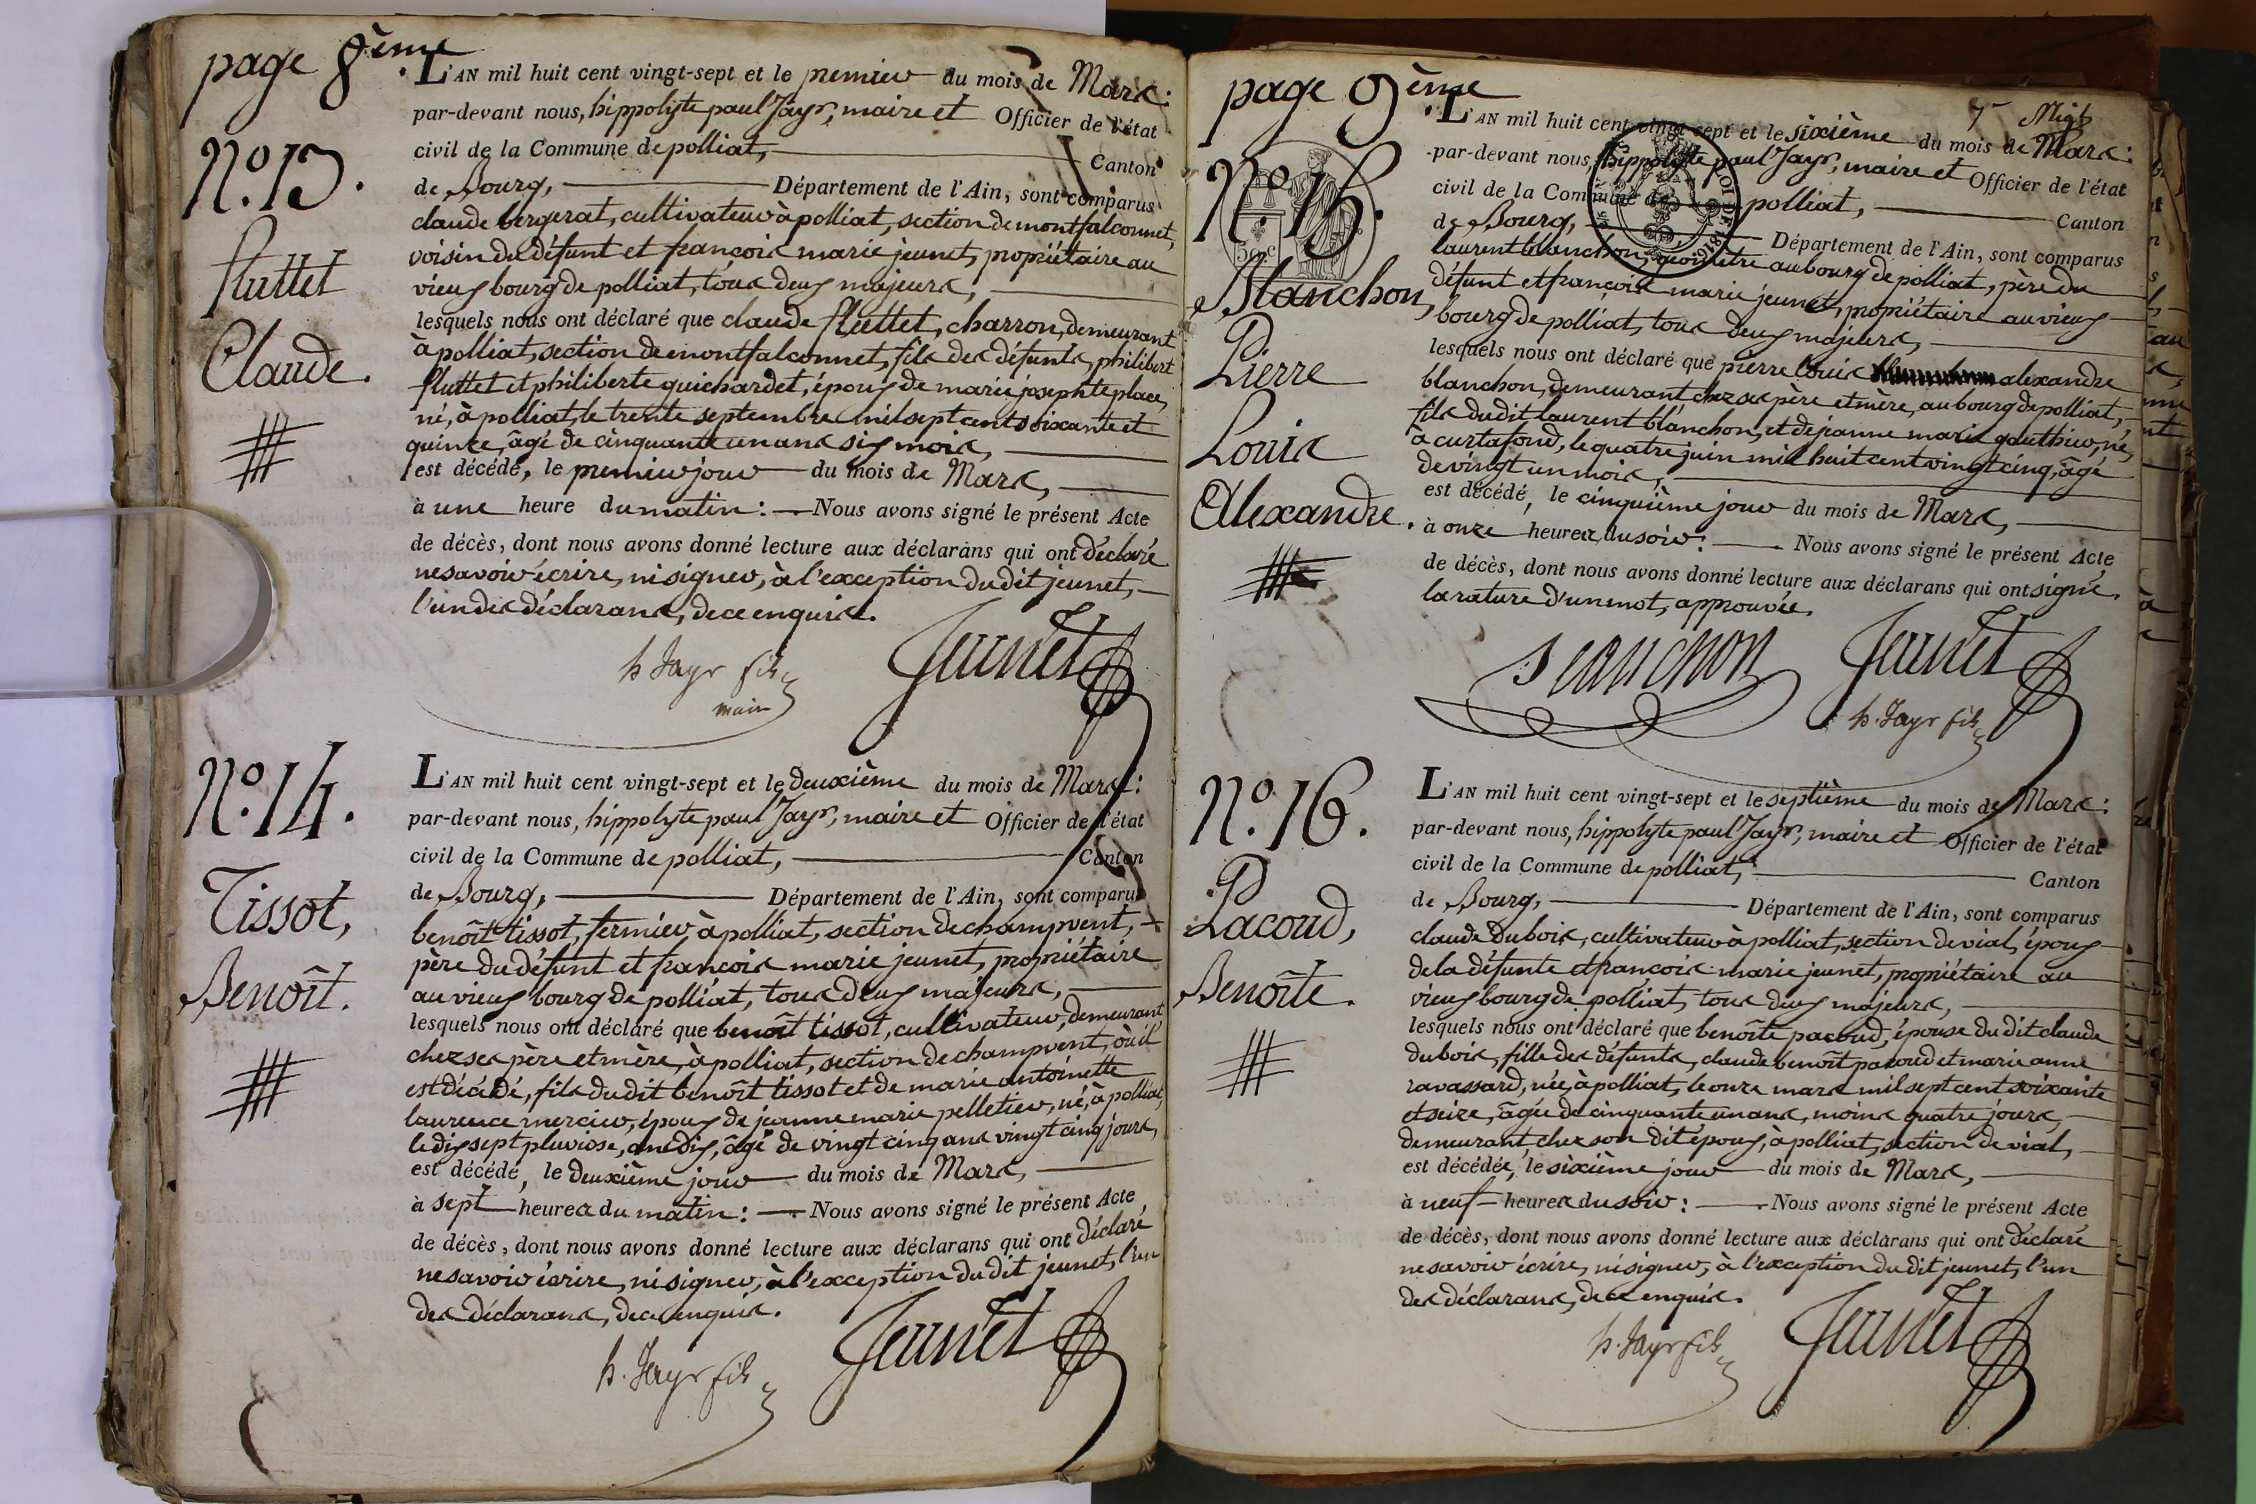 page 8ème.
N.º 13.
fluttet
Claude.
L'AN mil huit cent vingt-sept et le premier du mois de Mars:
par-devant nous, hippolyte paul Jayr, maire et Officier de l'état
civil de la Commune de polliat, Canton
de Bourg, Département de l'Ain, sont comparus
claude bergerat, cultivateur à polliat, section de montfalconnet,
voisin du défunt et françois marie jeunet, propriétaire au
vieux bourg de polliat, tous deux majeurs,
lesquels nous ont déclaré que claude fluttet, charron, demeurant
à polliat, section de montfalconnet, fils des défunts, philibert
fluttet et philiberte guichardet, époux de marie josephte place,
né, à polliat, le trente septembre mil sept cent soixante et
quinze, âgé de cinquante un ans six mois,
est décédé, le premier jour du mois de Mars,
à une heure du matin: Nous avons signé le présent Acte
de décès, dont nous avons donné lecture aux déclarans qui ont déclaré
ne savoir écrire, ni signer, à l'exception du dit jeunet,
l'un des déclarans, de ce enquis.
h Jayr fils
maire
Jeunet
N.º 14.
Tissot,
Benoît.
L'AN mil huit cent vingt-sept et le deuxième du mois de Mars:
par-devant nous, hippolyte paul Jayr, maire et Officier de l'état
civil de la Commune de polliat, Canton
de Bourg, Département de l'Ain, sont comparus
benoît tissot, fermier à polliat, section de champvent,
père du défunt et françois marie jeunet, propriétaire
au vieux bourg de polliat, tous deux majeurs,
lesquels nous ont déclaré que benoît tissot, cultivateur, demeurant
chez ses père et mère, à polliat, section de champvent, où il
est décédé, fils du dit benoît tissot et de marie antoinette
laurence mercier, époux de jeanne marie pelletier, né, à polliat,
le dix sept pluviose, an dix, âgé de vingt cinq ans vingt cinq jours,
est décédé, le deuxième jour du mois de Mars,
à sept heures du matin: Nous avons signé le présent Acte
de décès, dont nous avons donné lecture aux déclarans qui ont déclaré
ne savoir écrire, ni signer, à l'exception du dit jeunet, l'un
des déclarans, de ce enquis.
h. Jayr fils
Jeunet
page 9ème
N.º 15.
Blanchon,
Pierre
Louis
Alexandre.
L'AN mil huit cent vingt-sept et le sixième du mois de Mars:
par-devant nous, hippolyte paul Jayr, maire et Officier de l'état
civil de la Commune de polliat, Canton
de Bourg, Département de l'Ain, sont comparus
laurent blanchon, géomètre au bourg de polliat, père du
défunt et françois marie jeunet, propriétaire au vieux
bourg de polliat, tous deux majeurs,
lesquels nous ont déclaré que pierre louis alexandre
blanchon, demeurant chez ses père et mère, au bourg de polliat,
fils du dit laurent blanchon, et de jeanne marie gauthier, né,
à curtafond, le quatre juin mil huit cent vingt cinq, âgé
de vingt un mois,
est décédé, le cinquième jour du mois de Mars,
à onze heures du soir: Nous avons signé le présent Acte
de décès, dont nous avons donné lecture aux déclarans qui ont signé.
la rature d'un mot, approuvée.
Blanchon Jeunet
h. Jayr fils
LOI DE 1816
N.º 16.
Pacoud,
Benoîte.
L'AN mil huit cent vingt-sept et le septième du mois de Mars:
par-devant nous, hippolyte paul Jayr, maire et Officier de l'état
civil de la Commune de polliat, Canton
de Bourg, Département de l'Ain, sont comparus
claude dubois, cultivateur à polliat, section de vial, époux
de la défunte et françois marie jeunet, propriétaire au
vieux bourg de polliat, tous deux majeurs,
lesquels nous ont déclaré que benoîte pacoud, épouse du dit claude
dubois, fille des défunts, claude benoît pacoud et marie anne
ravassard, née, à polliat, le onze mars mil sept cent soixante
et seize, âgée de cinquante un ans, moins quatre jours,
demeurant, chez son dit époux, à polliat, section de vial,
est décédée, le sixième jour du mois de Mars,
à neuf heures du soir: Nous avons signé le présent Acte
de décès, dont nous avons donné lecture aux déclarans qui ont déclaré
ne savoir écrire, ni signer, à l'exception du dit jeunet, l'un
des déclarans, de ce enquis.
h. Jayr fils
Jeunet